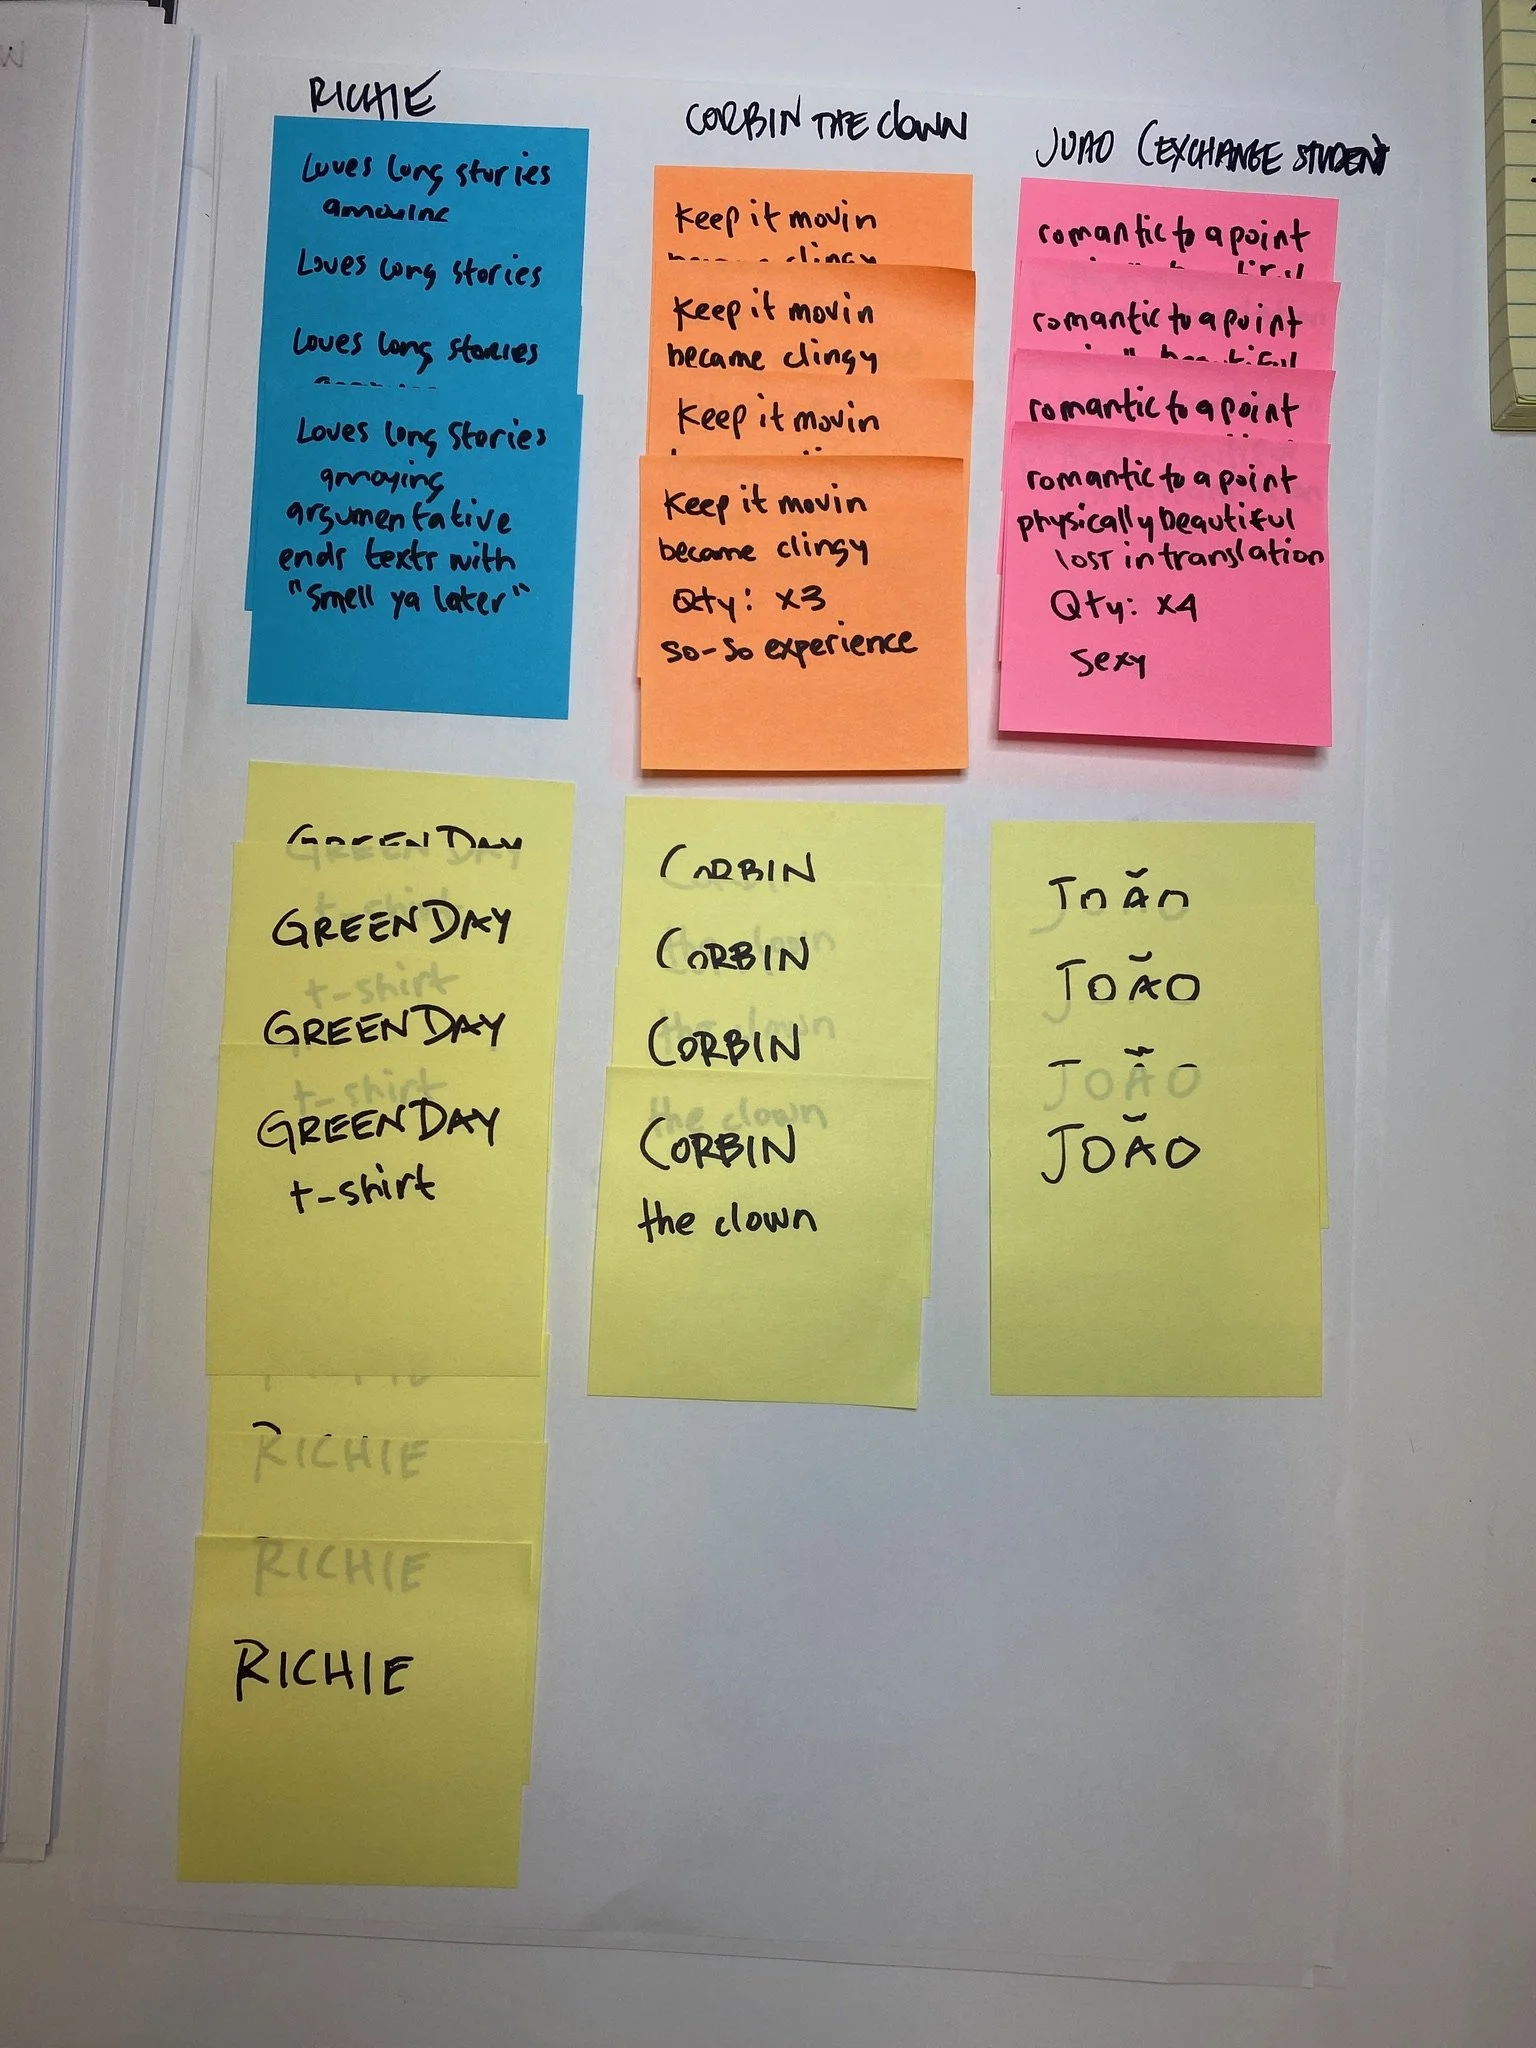 RICHIE
Loves long stories
annoying
Loves long stories
Loves long stories
Loves long stories
annoying
argumentative
ends texts with
"Smell ya later"
CORBIN THE CLOWN
Keep it movin
became clingy
Keep it movin
became clingy
Keep it movin
Keep it movin
became clingy
Qty: x3
so-so experience
JOAO (EXCHANGE STUDENT
romantic to a point
romantic to a point
physically beautiful
romantic to a point
romantic to a point
physically beautiful
LOST in translation
Qty: x4
sexy
GREEN DAY
t-shirt
GREEN DAY
t-shirt
GREEN DAY
t-shirt
GREEN DAY
t-shirt
RICHIE
RICHIE
RICHIE
CORBIN
the clown
CORBIN
the clown
CORBIN
the clown
CORBIN
the clown
JOÃO
JOÃO
JOÃO
JOÃO